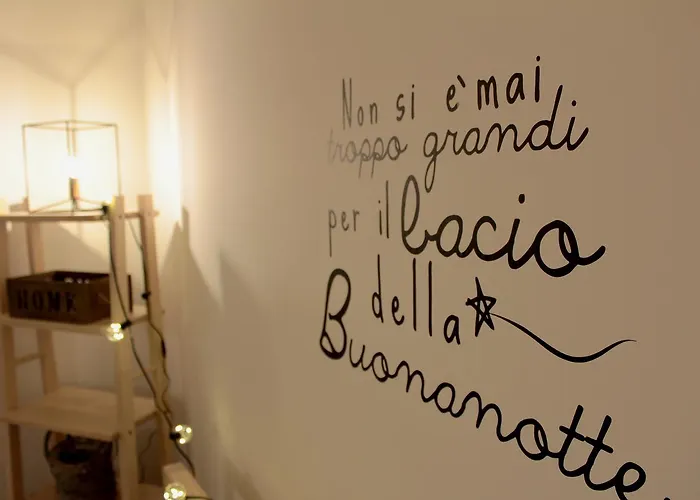 Non si è mai
troppo grandi
per il bacio
della
Buonanotte
HOME